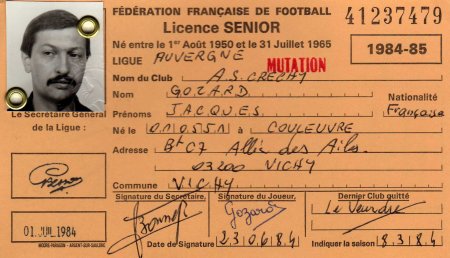 FÉDÉRATION FRANÇAISE DE FOOTBALL
41237479
Licence SENIOR
Né entre le 1er Août 1950 et le 31 Juillet 1965
1984-85
LIGUE AUVERGNE
MUTATION
Nom du Club A.S. CRECHY
Nom GOZARD
Nationalité
Prénom JACQUES
Française
Le Secrétaire Général
de la Ligue :
Né le 010551 à COULEUVRE
Adresse Bt C7 Allée des Ailes
03200 VICHY
Commune VICHY
Signature du Secrétaire,
Signature du Joueur,
Dernier Club quitté
Gozard
Le Veurdre
01 JUL 1984
Date de Signature 230684
Indiquer la saison 83 84
MOORE-PARAGON - ARGENT-SUR-SAULDRE